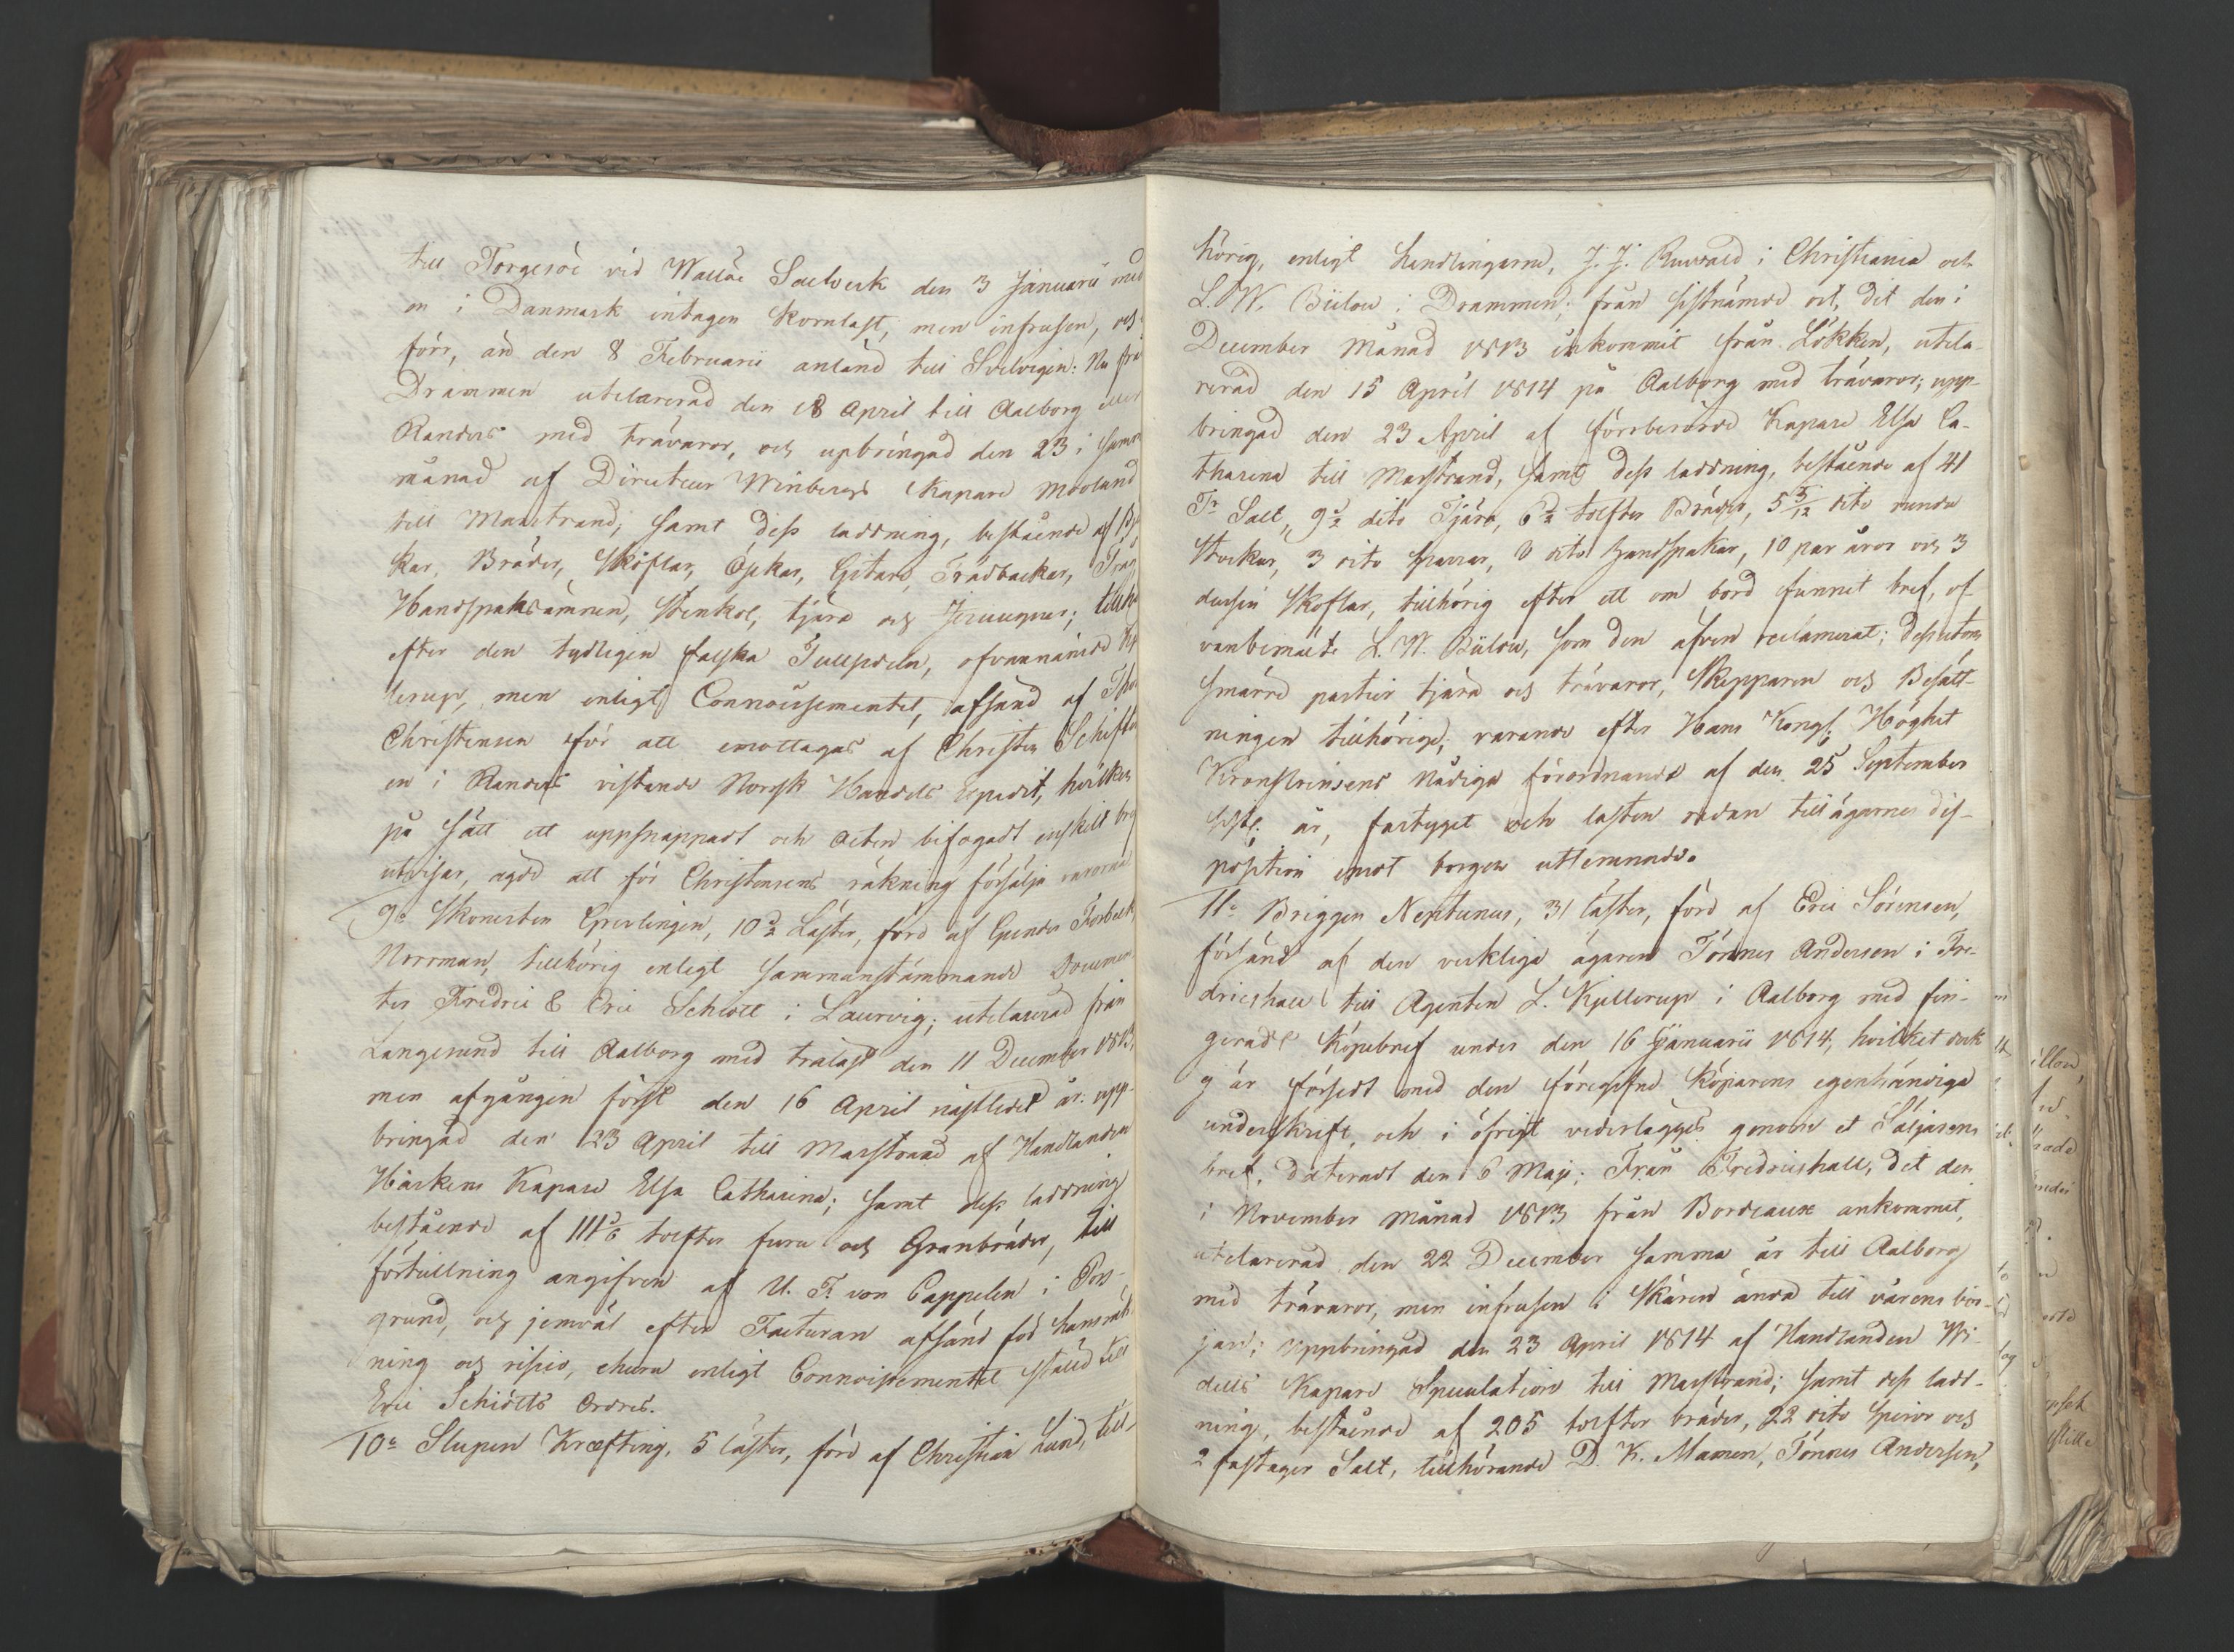 till Torgersöe vid Wallöe Saltverk den 3 Januarii med
en i Danmark intagen Kornlast, men infrusen, och
förr, än den 8 Februarii anländ till Svelvigen: Nu frå
Drammen utclarerad den 18 April till Aalborg eller
Randers med trävaror, och upbringad den 23 i samm
månad af Directeur Winbergs Kapare Moland
till Marstrand; samt dess laddning, bestående af
kar, Bräder, Skoflar, Öskar, Gitarr, Trädbackar, Tråg
Handspaksämnen, Stenkol, tjära och Jernugnar; tillhö
efter den tydligen falska Tullsedeln, ofvannämde
lerup, men enligt Connoissementet, afsänd af
Christensen för att emottagas af Christen Schifter
en i Randers vistande Norsk Handels Expedit, hvilken
på sätt ett uppsnappadt och acten bifogadt enskilt bref
utvisar, ägde att för Christensens räkning försälja varorna
9o Skonerten Grevlingen, 10 1/2 Läster, förd af Gunder Torbeck,
Norrman, tillhörig enligt sammanstämmande Documen
ter Fredric & Eric Schiött i Laurvig; utclarerad från
Langesund till Aalborg med trälast den 11 December 1813,
men afgången först den 16 April nästledet år: upp-
bringad den 23 April till Marstrand af Handlanden
Härkens Kapare Elsa Catharina; samt dess laddning
bestående af 111 5/6 tolfter furu och Granbräder, till
förtullning angifven af U. F. von Cappelen i Pors-
grund, och jemväl efter Facturan afsänd för hans räk
ning och risico, ehuru enligt Connoissementet ställd till
Eric Schiötts Ordres.
10o Slupen Kræfting, 5 läster, förd af Christian Lund, till-
hörig, enligt handlingarne, J. J. Ruwald i Christiania och
L. W. Bülow i Drammen; från sistnämde ort, dit den i
December månad 1813 inkommit från Lökken, utcla-
rerad den 15 April 1814 på Aalborg med trävaror; upp-
bringad den 23 April af förrberörde Kapare Elsa Ca-
tharina till Marstrand, samt dess laddning, bestående af 41
Tr Salt, 9 1/2 dito Tjära, 6 1/2 tolfter Bräder, 5 5/12 dito runda
Stockar, 3 dito sparrar, 8 dito handspakar, 10 par åror och 3
dussin Skoflar, tillhörig efter ett om bord funnit bref, of-
vanbemälte L. W. Bülow, som den äfven reclamerat; dessutom
smärre partier tjära och trävaror, Skepparen och Besätt-
ningen tillhörige; varande efter Hans Kongl. Höghet
Kronprinsens Nådiga förordnande af den 25 September
sistl. år, fartyget och lasten redan till ägarnes dis-
position emot borgen uttemnade.
11o Briggen Neptunus, 31 läster, förd af Eric Sörensen,
försänd af den verklige ägaren Tönnes Andersen i Fre-
dricshall till Agenten L. Kjellerup i Aalborg med fin-
gerade Köpebref under den 16 Januarii 1814, hvilket dock
ej är försedt med den föregifne Köparens egenhändiga
underskrift, och i öfrigt vederlägges genom et Säljarens
bref, dateradt den 6 Maji; Från Fredricshall, dit den
i November månad 1813 från Bordeaux ankommit,
utclarerad den 22 December samma år till Aalborg
med trävaror, men infrusen i Skären ända till vårens bör-
jan; Uppbringad den 23 April 1814 af Handlanden Wi-
dells Kapare Speculation till Marstrand; samt dess ladd-
ning, bestående af 205 tolfter bräder, 22 dito spiror och
2 fastager Salt, tillhörande D. K. Mamen, Tönnes Andersen,